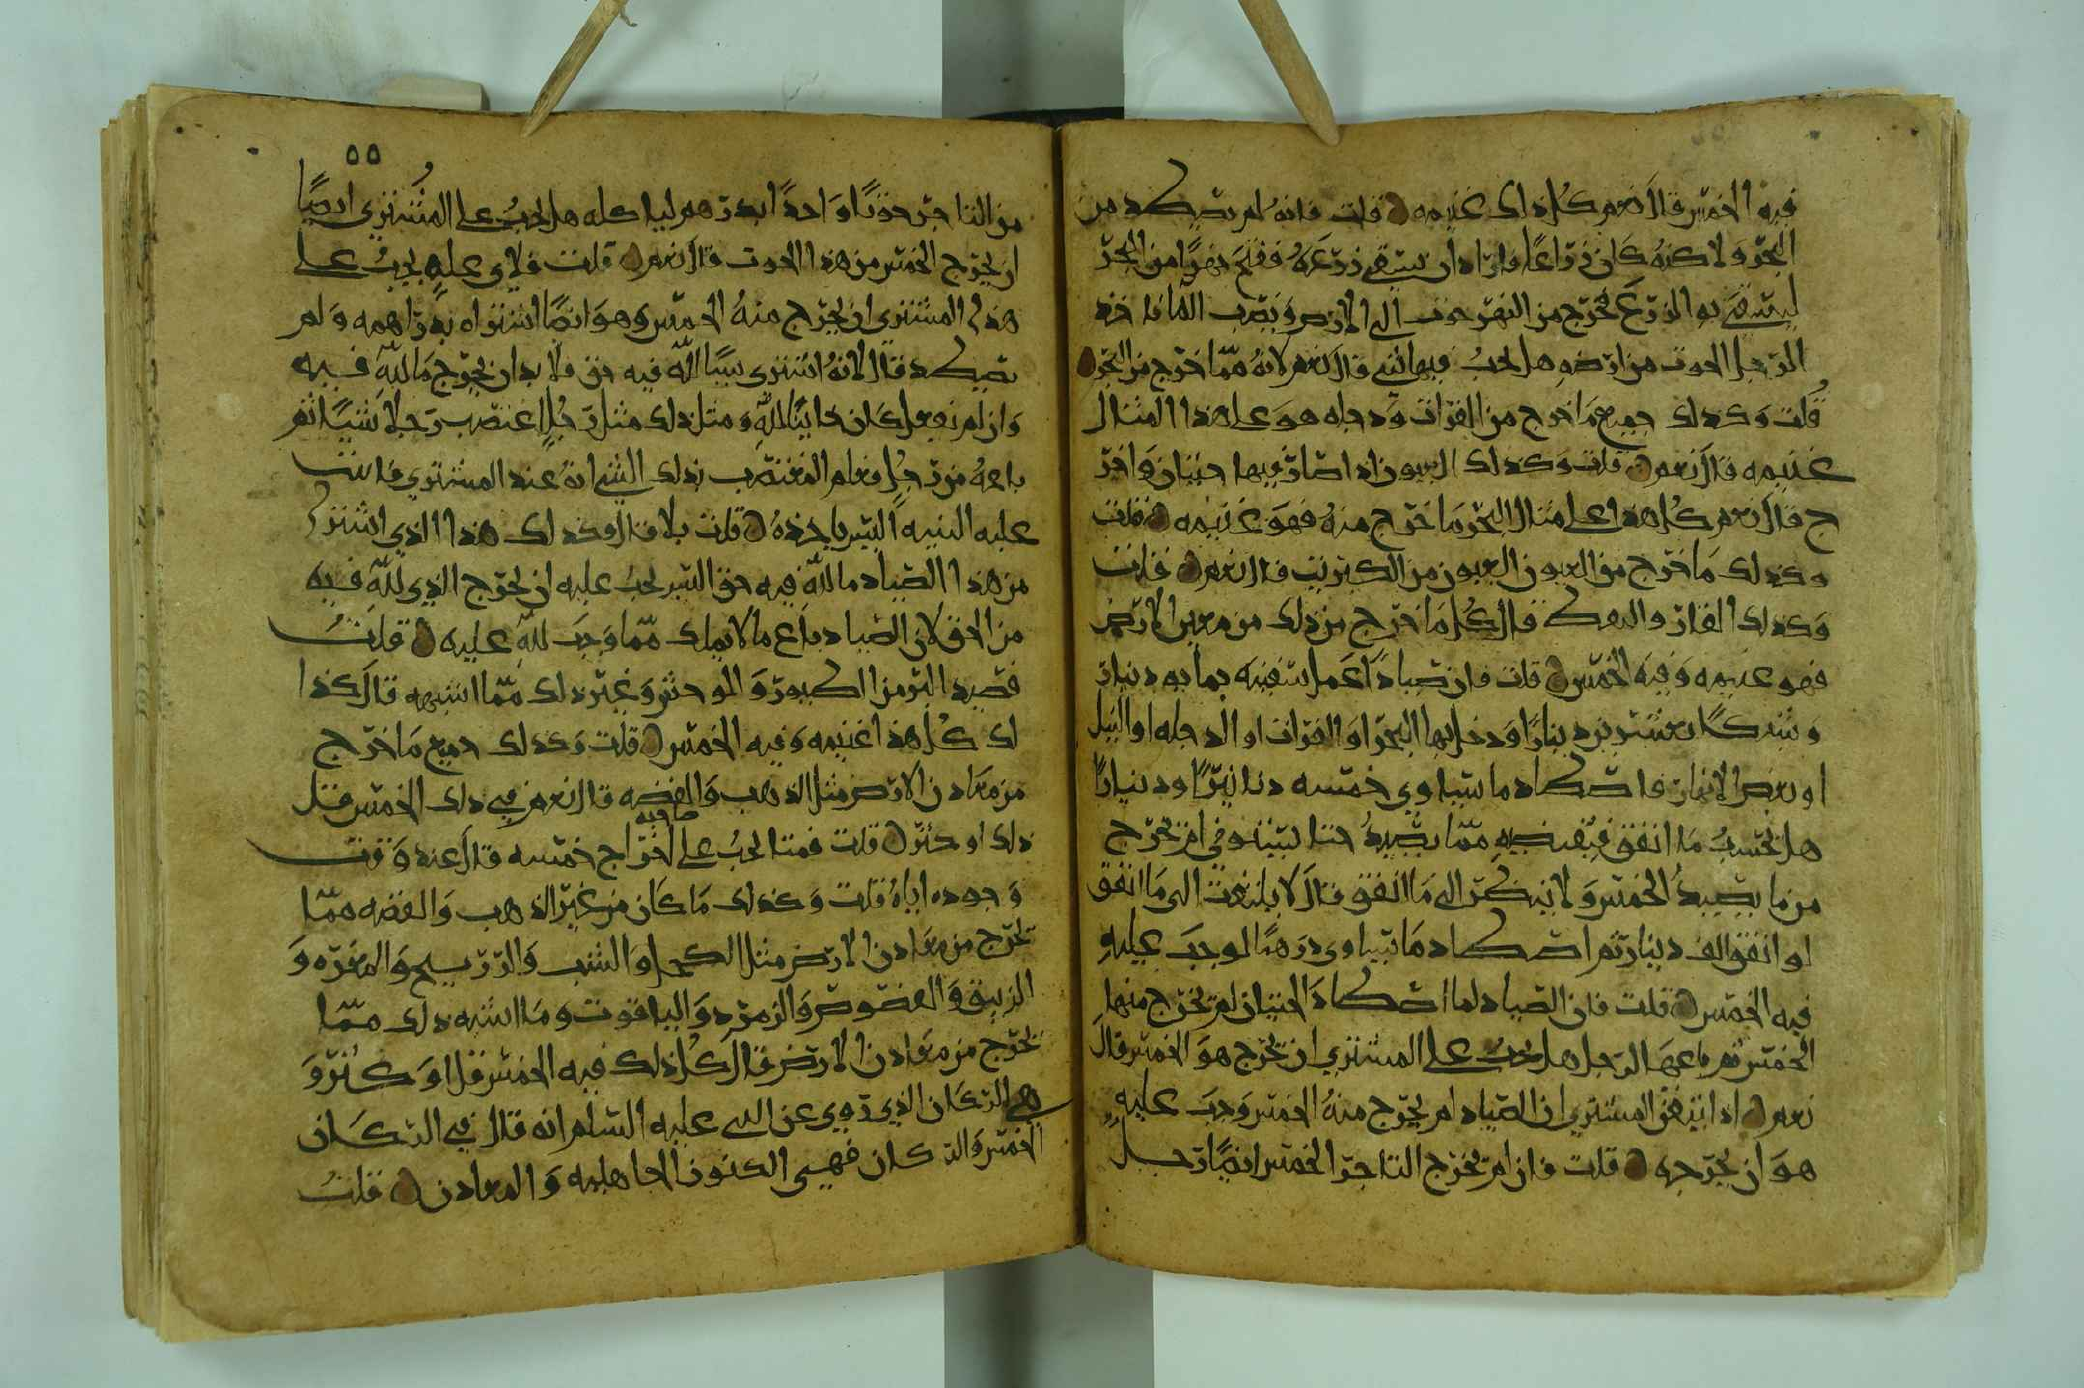 فيه الخمس قال نعم كل ذلك غنيمه قلت فانه لم يصكد من
البحر ولاكنه كان زراعا فاراد ان يسقي زرعه ففتح نهرا من البحر
ليسقي به الزرع فخرج من النهر حوت الى الارض ونضب الما فاخذ
الرجل الحوت من ارضه هل يجب فيها شي قال نعم لانه مما خرج من البحر
قلت وكذلك جميع ما خرج من الفرات ودجله هو على هذا المثال
غنيمه قال نعم قلت وكذلك السيون اذا صار فيها حيتان واخر
ج قال نعم كل هذا على مثال البحر ما خرج منه فهو غنيمه قلت
وكذلك ما خرج من العيون العيون من الكبريت قال نعم قلت
وكذلك القار والنفط قال كل ما خرج من ذلك من معين الارض
فهو غنيمه وفيه الخمس قلت فان صيادا عمل سفينه بمايه دينار
وشبكا بعشرين دينارا ودخل بها البحر او الفرات او الدجله او النيل
او بعض الانهار فاصطاد ما يساوي خمسه دنانير او دينارا
هل يحتسب ما انفق فيقضيه مما يصيد حتا يستوفي ام يخرج
من ما يصيد الخمس ولا ينظر الى ما انفق قال لا يلتفت الى ما انفق
لو انفق الف دينار ثم اصطاد ما يساوي درهما لوجب عليه
فيه الخمس قلت فان الصياد لما اصطاد الحيتان لم يخرج منها
الخمس ثم باعها الرجل هل يجب على المشتري ان يخرج هو الخمس قال
نعم اذا ايقن المشتري ان الصياد لم يخرج منه الخمس وجب عليه
هو ان يخرجه قلت فان لم يخرج التاجر الخمس ايضا رجل
٥٥
من التاجر حوتا واحدا بدرهم لياكله هل يجب على المشتري ايضا
ان يخرج الخمس من هذا الحوت قال نعم قلت ولاي عله يجب على
هذا المشتري ان يخرج منه الخمس وهو ايضا اشتراه بدراهمه ولم
يصكد قال لانه اشترى شيا لله فيه حق فلا بد ان يخرج ما لله فيه
وان لم يفعل كان خاينا لله ومثل ذلك مثل رجل اغتصب رجلا شيا ثم
باعه من رجل فعلم المغتصب بذلك الشي انه عند المشتري فاتت
عليه البنيه اليس ياخذه قلت بلا قال وكذلك هذا الذي اشترى
من هذا الصياد ما لله فيه حق اليس يجب عليه ان يخرج الذي لله فيه
من الحق لان الصياد باع ما لا يملك مما وجب لله عليه قلت
فصيد البر من الطيور والوحش وغير ذلك مما اشبهه قال كذا
لك كل هذا غنيمه وفيه الخمس قلت وكذلك جميع ما خرج
من معادن الارض مثل الذهب والفضه قال نعم في ذلك الخمس قل
ذلك او كثر قلت فمتا يجب على صاحبه اخراج خمسه قال عند وقت
وجوده اياه قلت وكذلك ما كان من غير الذهب والفضه مما
يخرج من معادن الارض مثل الكحل والشب والزرنيخ والمغره و
الزيبق والفصوص والزمرد والياقوت وما اشبه ذلك مما
يخرج من معادن الارض قال كل ذلك فيه الخمس قل او كثر و
هي الركان الذي روي عن النبي عليه السلم انه قال في الركان
الخمس والركان فهي الكنوز الجاهليه والمعادن قلت